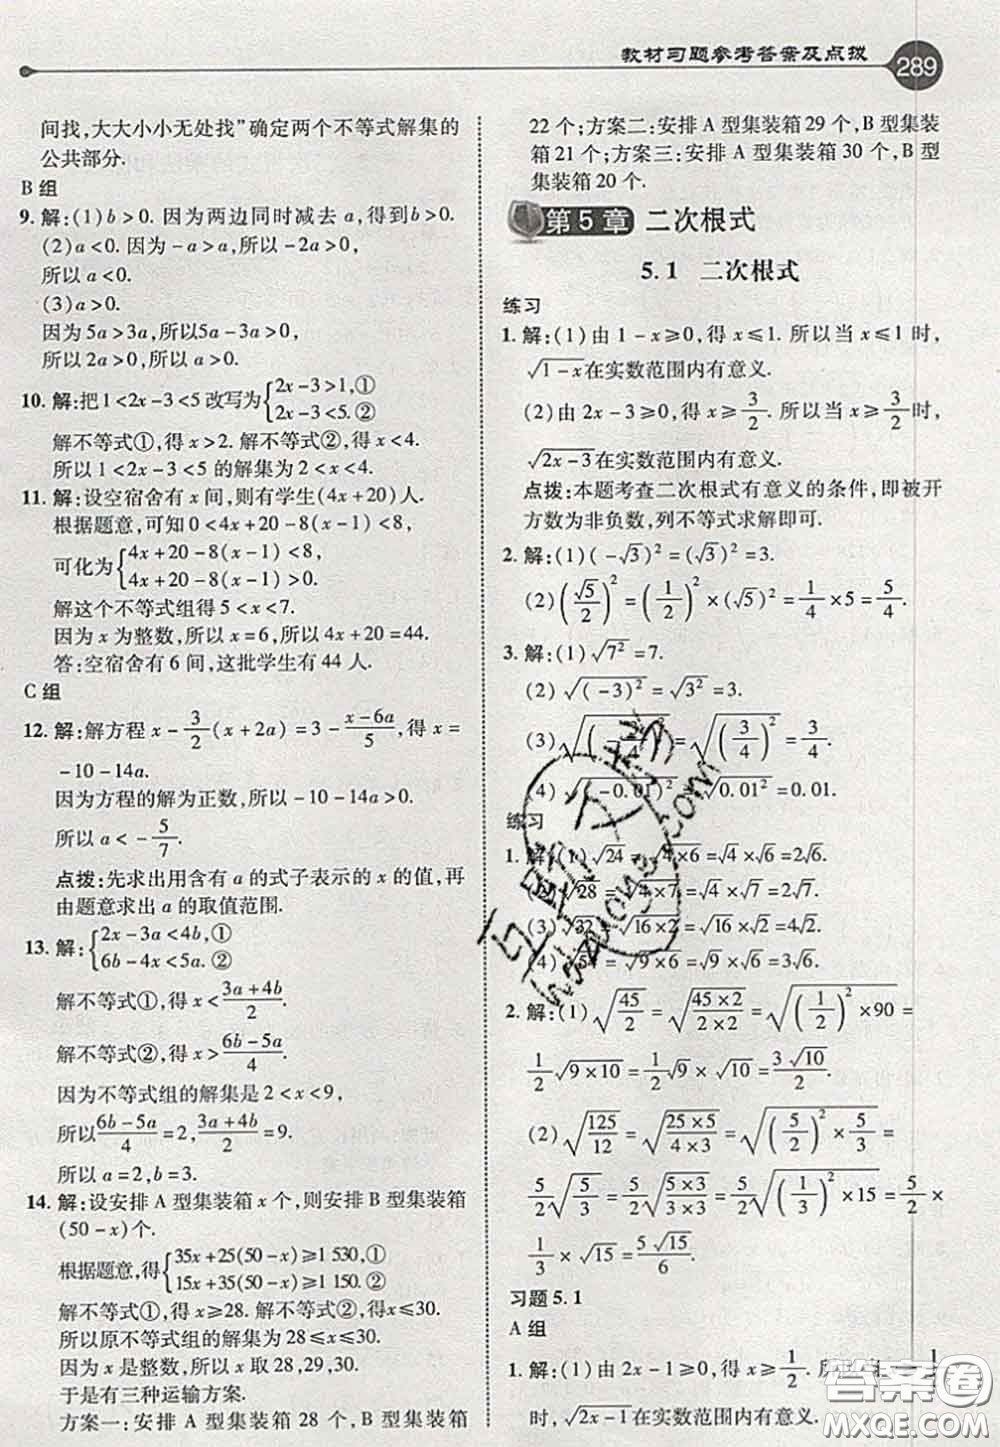 教材习题参考答案及点拨
289
间找,大大小小无处找”确定两个不等式解集的
公共部分.
B 组
9. 解:(1)b>0. 因为两边同时减去 a,得到 b>0.
(2)a<0. 因为-a>a,所以-2a>0,
所以 a<0.
(3)a>0.
因为 5a>3a,所以5a-3a>0,
所以 2a>0,所以 a>0.
10. 解:把 1<2x-3<5 改写为{2x-3>1,①
2x-3<5. ②
解不等式①,得 x>2. 解不等式②,得 x<4.
所以 1<2x-3<5 的解集为 2<x<4.
11. 解:设空宿舍有 x 间,则有学生(4x+20)人.
根据题意,可知 0<4x+20-8(x-1)<8,
可化为{4x+20-8(x-1)<8,
4x+20-8(x-1)>0.
解这个不等式组得 5<x<7.
因为 x 为整数,所以 x=6,所以 4x+20=44.
答:空宿舍有 6 间,这批学生有 44 人.
C 组
12. 解:解方程 x-3/2(x+2a)=3-(x-6a)/5,得 x=
-10-14a.
因为方程的解为正数,所以-10-14a>0.
所以 a<-5/7.
点拨:先求出用含有 a 的式子表示的 x 的值,再
由题意求出 a 的取值范围.
13. 解:{2x-3a<4b,①
6b-4x<5a. ②
解不等式①,得 x<(3a+4b)/2.
解不等式②,得 x>(6b-5a)/4.
因为不等式组的解集是 2<x<9,
所以(6b-5a)/4=2,(3a+4b)/2=9.
所以 a=2,b=3.
14. 解:设安排 A 型集装箱 x 个,则安排 B 型集装箱
(50-x)个.
根据题意,得{35x+25(50-x)≥1 530,①
15x+35(50-x)≥1 150. ②
解不等式①,得 x≥28. 解不等式②,得 x≤30.
所以原不等式组的解集为 28≤x≤30.
因为 x 是整数,所以 x 取 28,29,30.
于是有三种运输方案.
方案一:安排 A 型集装箱 28 个,B 型集装箱
22 个;方案二:安排 A 型集装箱 29 个,B 型集装
箱 21 个;方案三:安排 A 型集装箱 30 个,B 型
集装箱 20 个.
第 5 章 二次根式
5.1 二次根式
练习
1. 解:(1)由 1-x≥0,得 x≤1. 所以当 x≤1 时,
√(1-x)在实数范围内有意义.
(2)由 2x-3≥0,得 x≥3/2. 所以当 x≥3/2时,
√(2x-3)在实数范围内有意义.
点拨:本题考查二次根式有意义的条件,即被开
方数为非负数,列不等式求解即可.
2. 解:(1)(-√3)²=(√3)²=3.
(2)(√5/2)²=(1/2)²×(√5)²=1/4×5=5/4.
3. 解:(1)√7²=7.
(2)√(-3)²=√3²=3.
(3)√(-3/4)²=√(3/4)²=3/4.
(4)√(-0.01)²=√0.01²=0.01.
练习
1. 解:(1)√24=√(4×6)=√4×√6=2√6.
(2)√28=√(4×7)=√4×√7=2√7.
(3)√32=√(16×2)=√16×√2=4√2.
(4)√54=√(9×6)=√9×√6=3√6.
2. 解:(1)√(45/2)=√((45×2)/(2×2))=√((1/2)²×90)=
1/2√(9×10)=1/2√9×√10=3√10/2.
(2)√(125/12)=√((25×5)/(4×3))=√((5/2)²×5/3)=
5/2√(5/3)=5/2√((5×3)/(3×3))=5/2√((1/3)²×15)=5/2×
1/3×√15=5√15/6.
习题 5.1
A 组
1. 解:(1)由 2x-1≥0,得 x≥1/2. 所以当 x≥1/2
时,√(2x-1)在实数范围内有意义.
答案卷
MXQE.COM